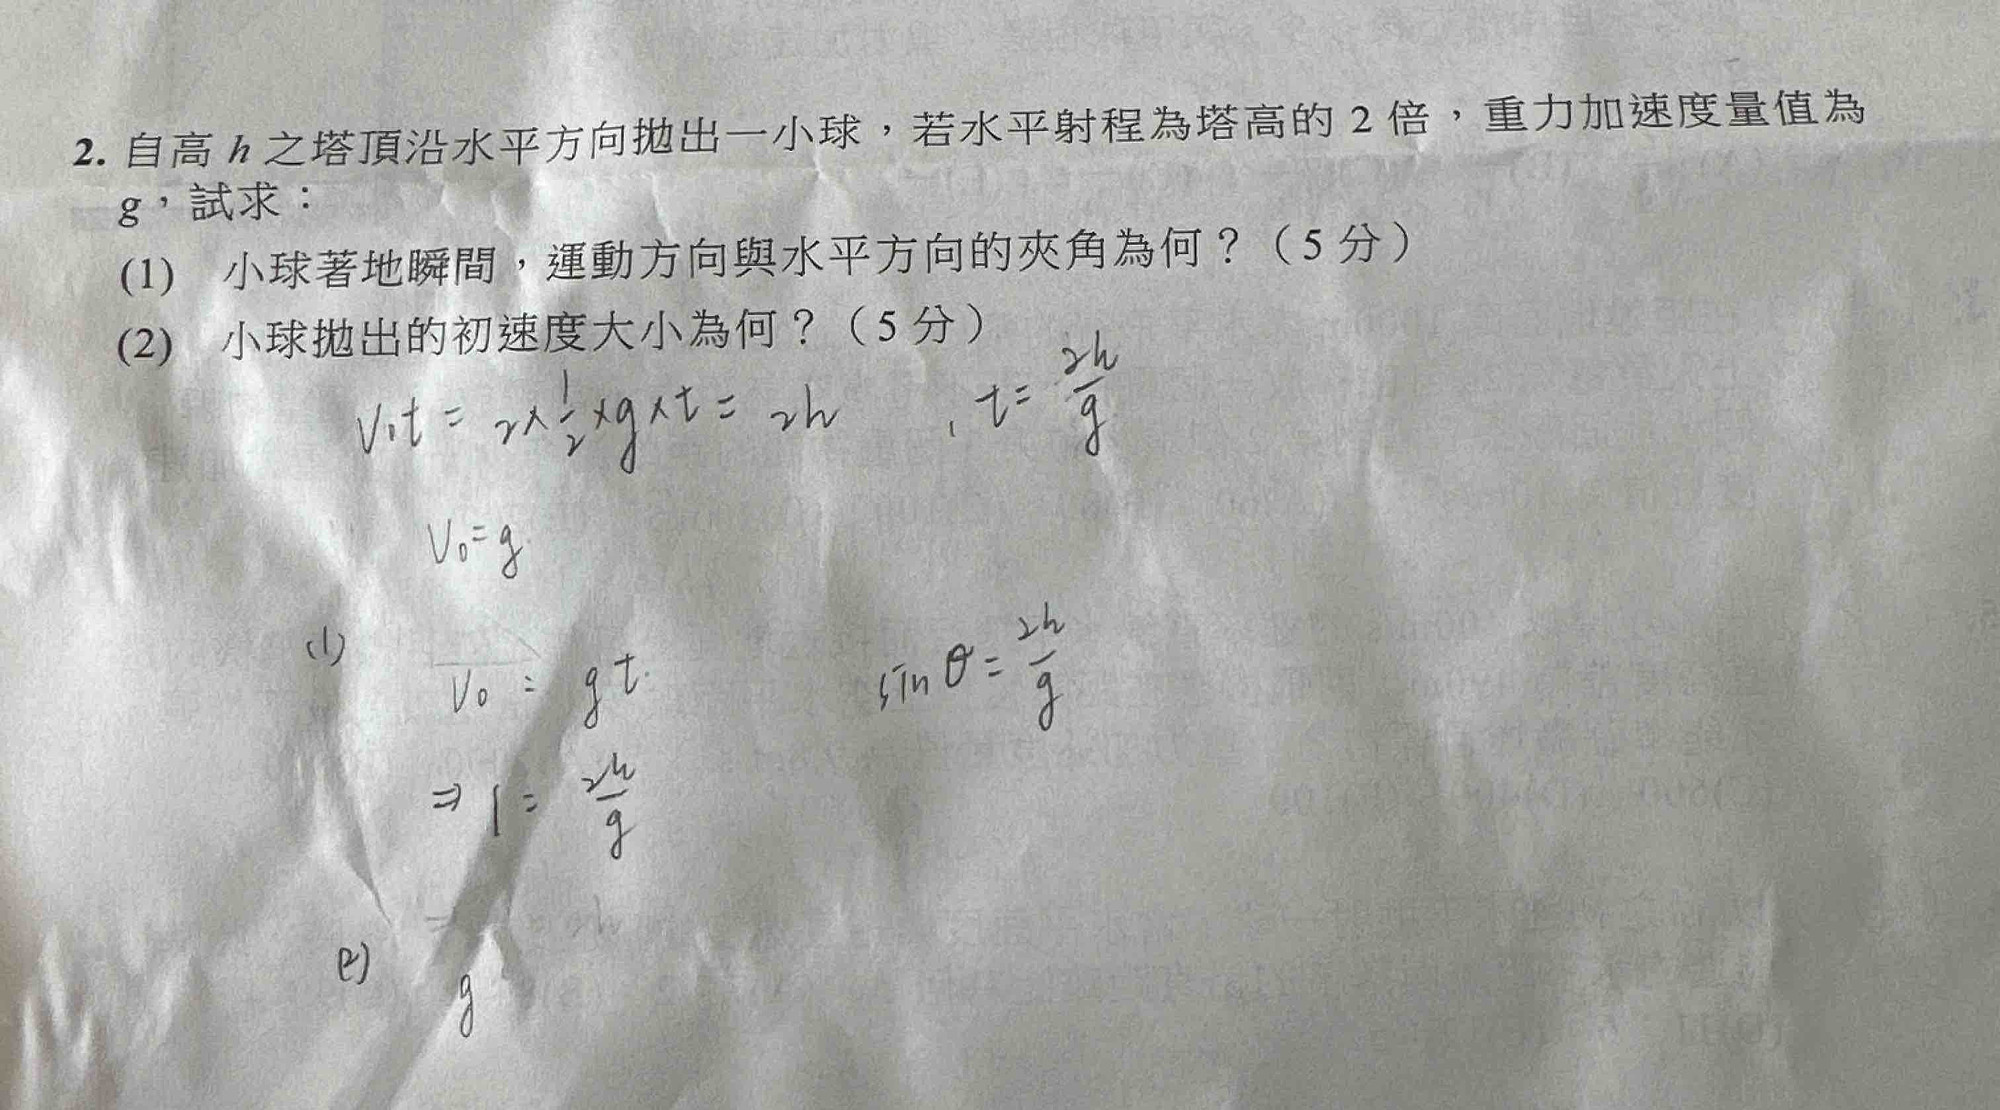 2. 自高 h 之塔頂沿水平方向拋出一小球，若水平射程為塔高的 2 倍，重力加速度量值為
g，試求：
(1) 小球著地瞬間，運動方向與水平方向的夾角為何？（5 分）
(2) 小球拋出的初速度大小為何？（5 分）
V₀t = 2×1/2×g×t = 2h , t = 2h/g
V₀ = g
(1) V₀ : gt. sin θ = 2h/g
⇒ 1 : 2h/g
(2) g